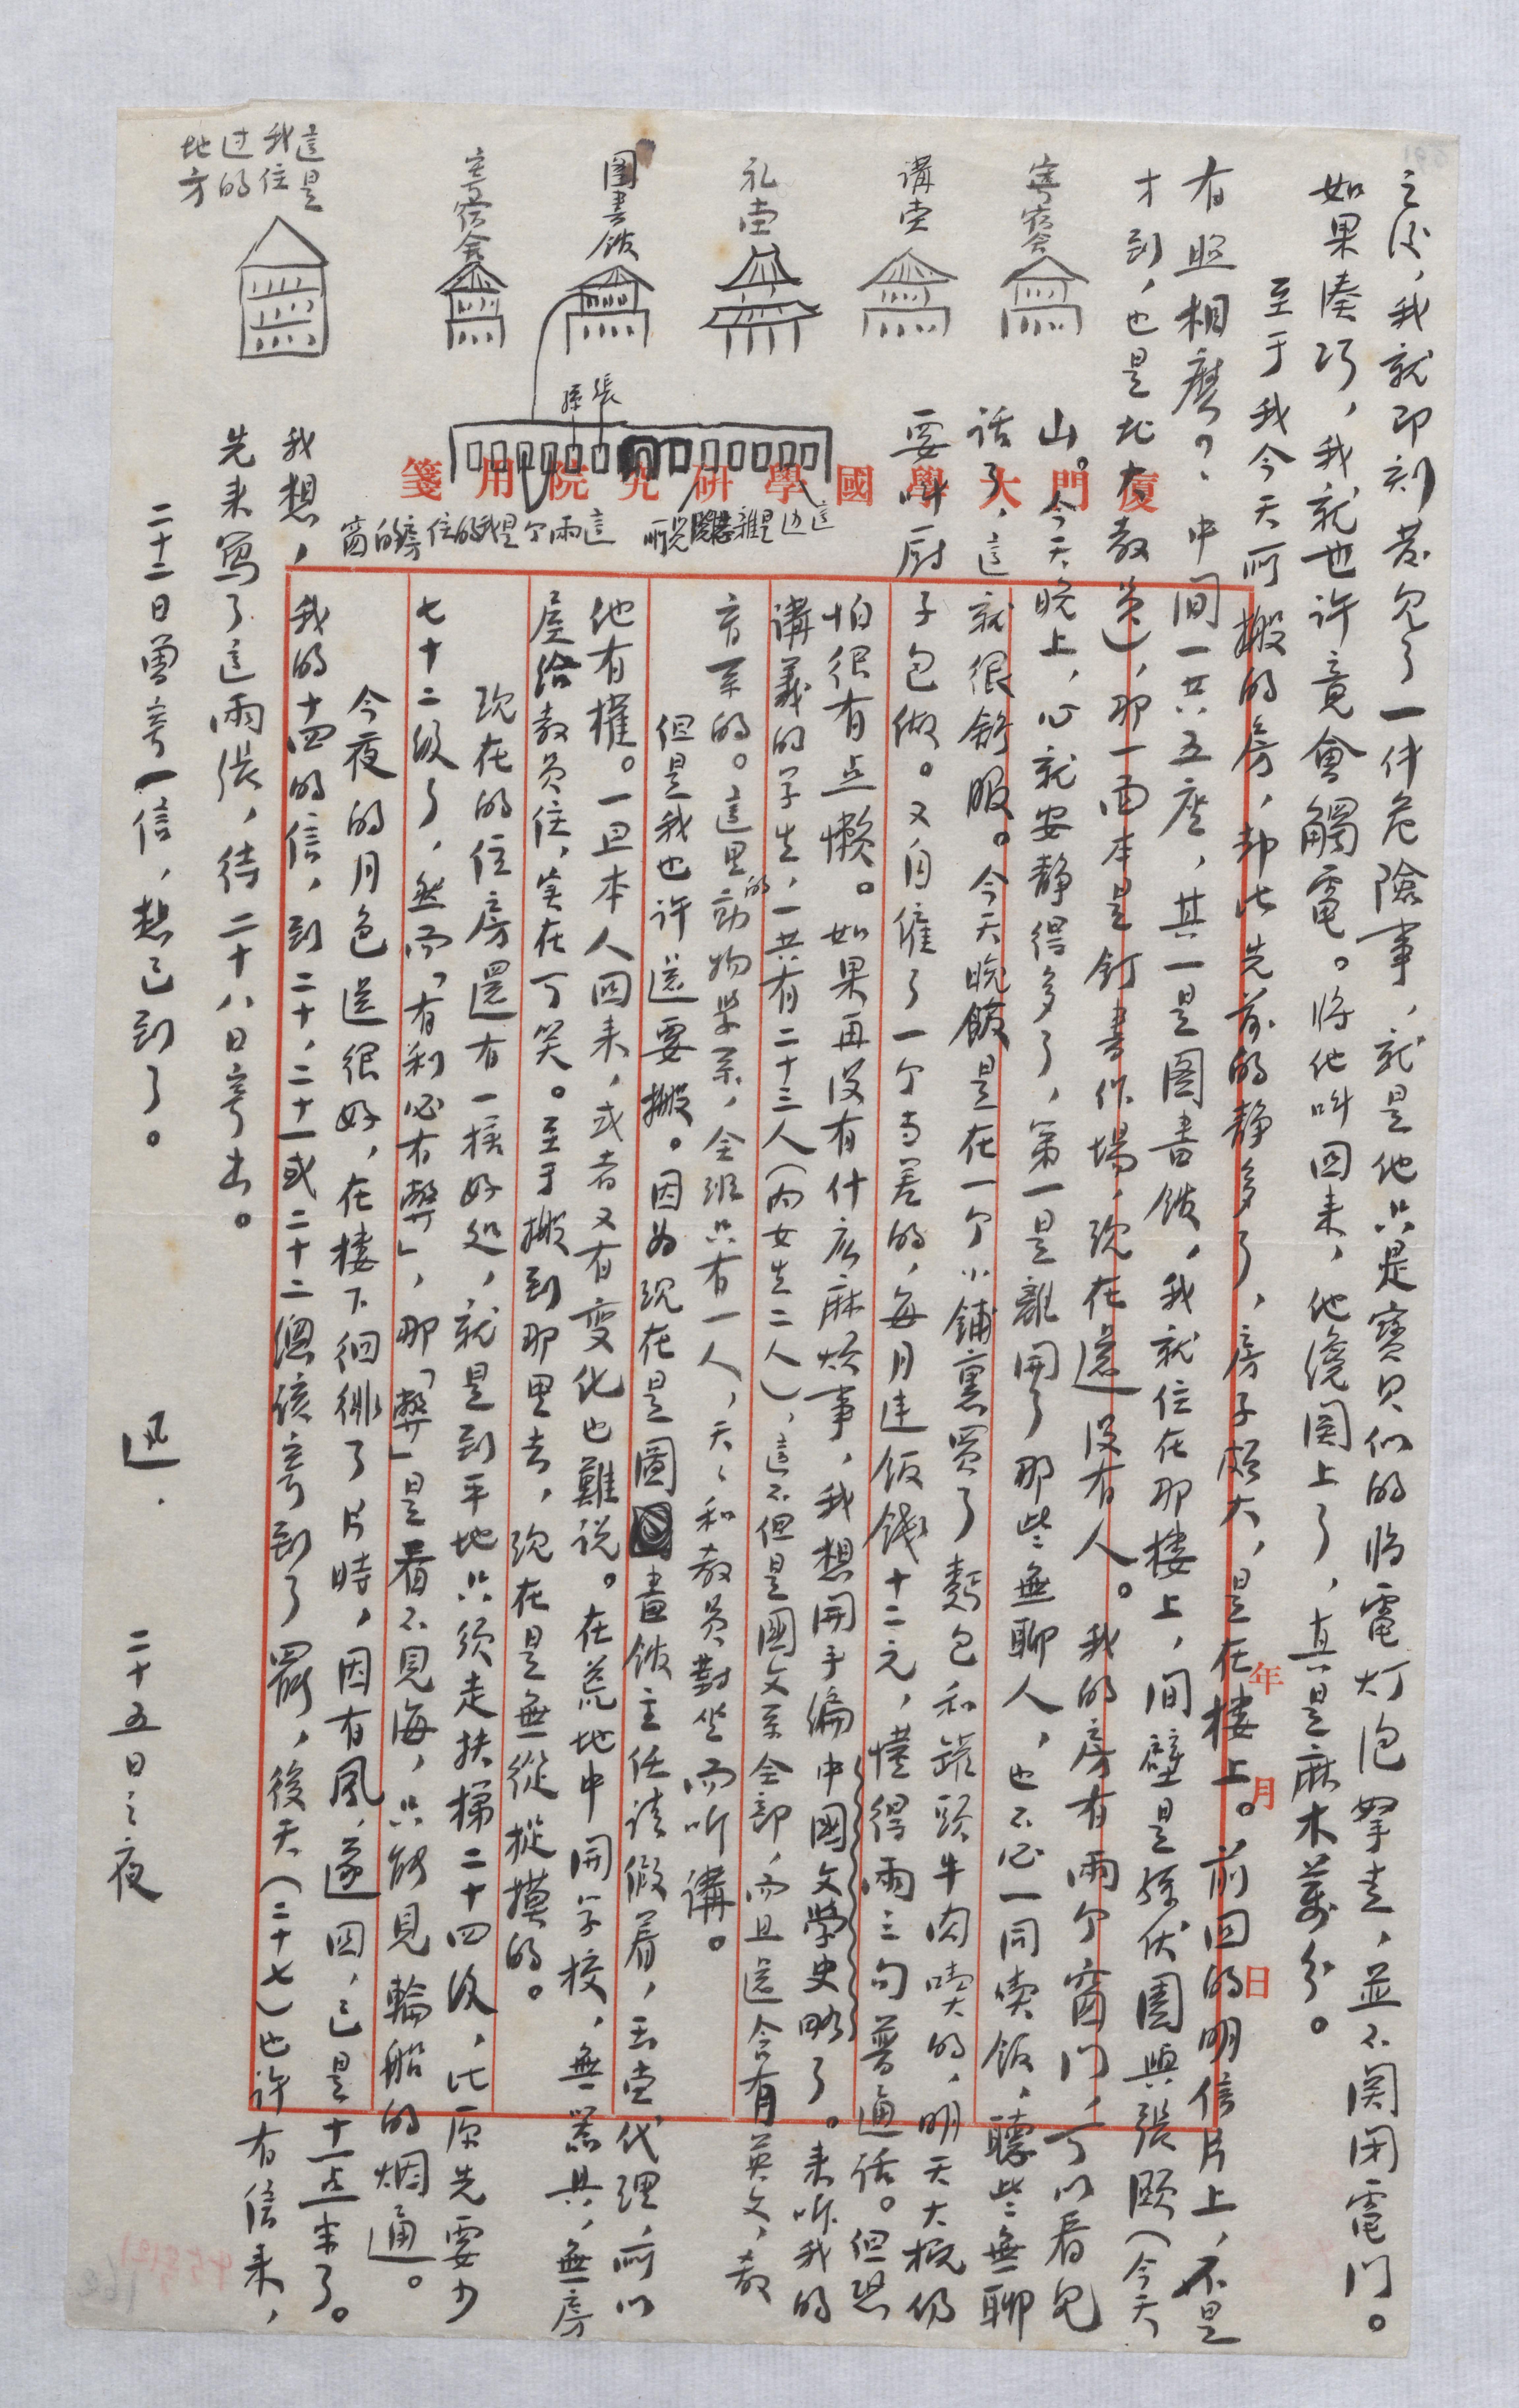 之后，我就即刻發见了一件危險事，就是他只是寶貝似的將電灯泡拏走，並不関閉電门。
如果凑巧，我就也许竟會觸電。将他叫回来，他纔関上了，真是麻木萬分。
至于我今天所搬的房，却比先前的静多了，房子颇大，是在楼上。前回的明信片上，不是
有照相麽？中间一共五座，其一是图書馆，我就住在那楼上，间壁是孫伏園與張頤（今天
才到，也是北大教员），那一面本是釘書作場，现在還没有人。我的房有兩个窗门，可以看見
山。今天晚上，心就安静得多了，第一是離開了那些無聊人，也不必一同喫饭，聽些無聊
話了，這就很舒服。今天晚飯是在一个小鋪裏買了麵包和罐頭牛肉喫的，明天大概仍
要叫厨子包做。又自僱了一个当差的，每月连饭钱十二元，懂得兩三句普通话。但恐
怕很有点懶。如果再没有什麽麻烦事，我想開手编中國文學史略了。来听我的
講義的学生，一共有二十三人（内女生二人），這不但是國文系全部，而且還含有英文，教
育系的。這里的動物學系，全班只有一人，天天和教员對坐而听講。
但是我也许還要搬。因为现在是圖書馆主任请假着，玉堂代理，所以
他有權。一旦本人回来，或者又有变化也難说。在荒地中開学校，無器具，無房
屋给教员住，实在可笑。至于搬到那里去，现在是無從揣摸的。
现在的住房還有一様好处，就是到平地只须走扶梯二十四级，比原先要少
七十二级了，然而「有利必有弊」，那「弊」是看不见海，只能見輪船的烟通。
今夜的月色還很好，在楼下徊徘了片時，因有風，遂回，已是十一点半了。
我想，我的十四的信，到二十，二十一或二十二總该寄到了罷，後天（二十七）也许有信来，
先来寫了這兩张，待二十八日寄出。
二十二日曾寄一信，想已到了。
迅． 二十五日之夜
寄宿舍
講堂
礼堂
图書馆
寄宿舍
這是
我住
过的
地方
張
孫
這边是誰
這兩个是我的住的房的窗
厦門大學國學研究院用箋
年 月 日